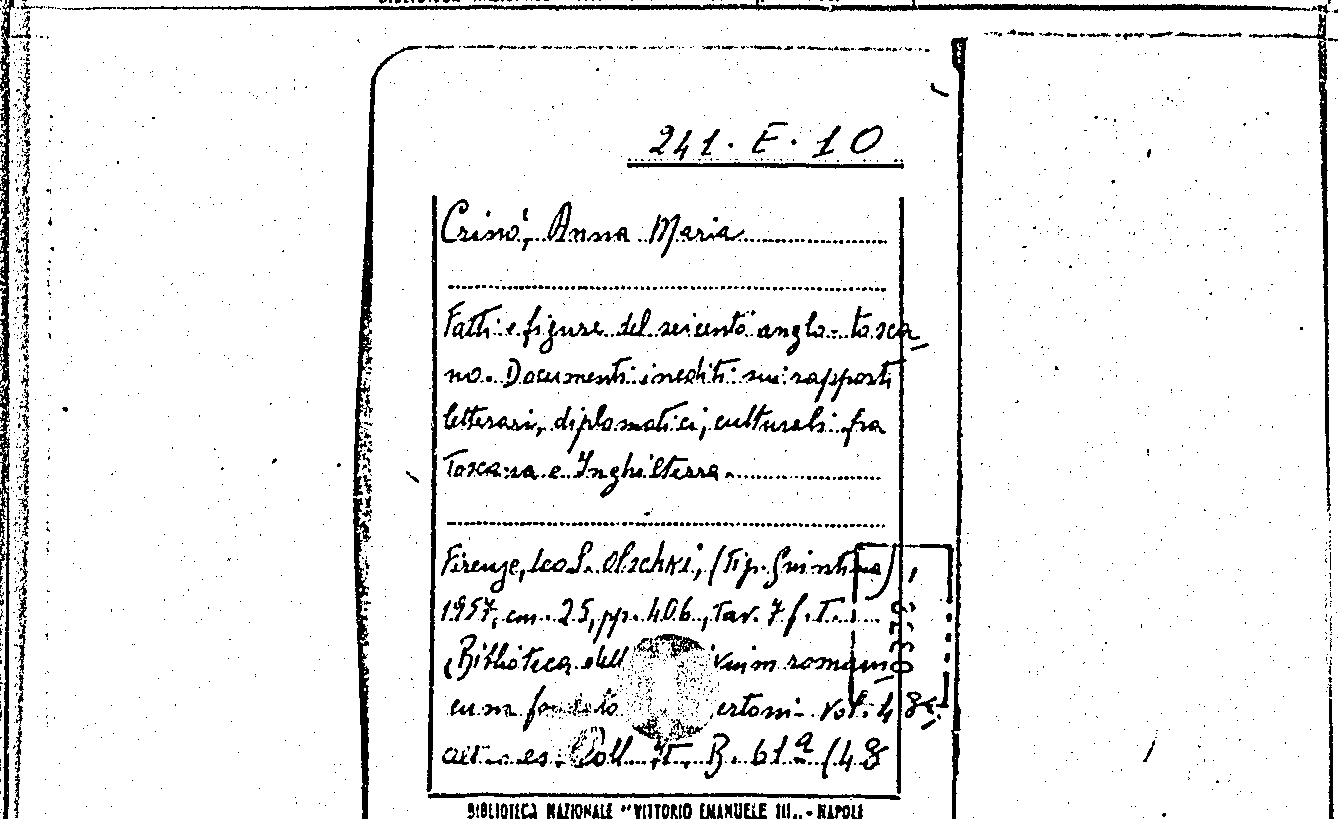 241. E. 10
Crinò, Anna Maria
Fatti e figure del seicento anglo-tosca
no. Documenti inediti sui rapporti
letterari, diplomatici, culturali fra
Toscana e Inghilterra.
Firenze, Leo S. Olschki, (Tip. Giuntina)
1957, cm. 25, pp. 406, tav. 7 f. t.
(Biblioteca dell' vum romani
cum vol. 48.
Coll. It. B. 61ª (48
BIBLIOTECA NAZIONALE "VITTORIO EMANUELE III" - NAPOLI